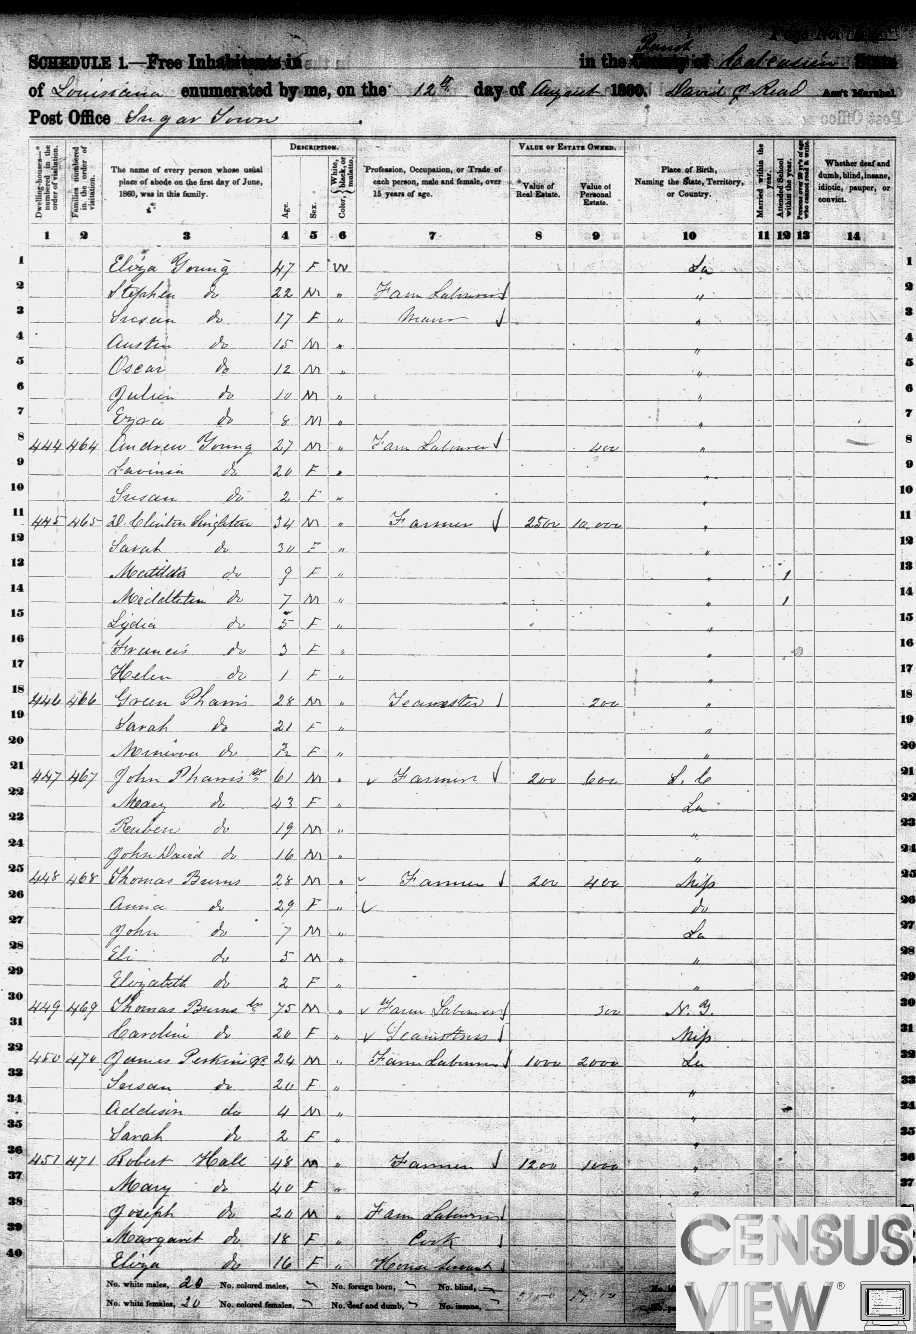 SCHEDULE 1.—Free Inhabitants in in the Parish County of Calcasieu State
of Louisiana enumerated by me, on the 12th day of August 1860. David J Read Ass't Marshal
Post Office Sugar Town
Dwelling-houses—numbered in the order of visitation.
Families numbered in the order of visitation.
The name of every person whose usual place of abode on the first day of June, 1860, was in this family.
DESCRIPTION.
Age.
Sex.
Color, White, black, or mulatto.
Profession, Occupation, or Trade of each person, male and female, over 15 years of age.
VALUE OF ESTATE OWNED.
Value of Real Estate.
Value of Personal Estate.
Place of Birth, Naming the State, Territory, or Country.
Married within the year.
Attended School within the year.
Whether deaf and dumb, blind, insane, idiotic, pauper, or convict.
1 2 3 4 5 6 7 8 9 10 11 12 13 14
1 Eliza Young 47 F W La 1
2 Stephen do 22 M " Farm Laborer " 2
3 Susan do 17 F " " 3
4 Austin do 15 M " " 4
5 Oscar do 12 M " " 5
6 Julien do 10 M " " 6
7 Ezra do 8 M " " 7
8 444 464 Andrew Young 27 M " Farm Laborer 400 " 8
9 Lavinia do 20 F " " 9
10 Susan do 2 F " " 10
11 445 465 D Clinton Singleton 34 M " Farmer 2500 10,000 " 11
12 Sarah do 30 F " " 12
13 Matilda do 9 F " " 1 13
14 Middleton do 7 M " " 1 14
15 Lydia do 5 F " " 15
16 Francis do 3 F " " 16
17 Helen do 1 F " " 17
18 446 466 Green Pharris 28 M " Teamster 200 " 18
19 Sarah do 21 F " " 19
20 Minerva do F " " 20
21 447 467 John Pharris Sr 61 M " Farmer 200 600 S. C 21
22 Mary do 43 F " La 22
23 Reuben do 19 M " " 23
24 John David do 16 M " " 24
25 448 468 Thomas Burns 28 M " Farmer 200 400 Miss 25
26 Anna do 29 F " do 26
27 John do 7 M " La 27
28 Eli do 5 M " " 28
29 Elizabeth do 2 F " " 29
30 449 469 Thomas Burns Sr 75 M " Farm Laborer 300 N. Y. 30
31 Caroline do 20 F " Seamstress Miss 31
32 450 470 James Perkins Jr 24 M " Farm Laborer 1000 2000 La 32
33 Susan do 20 F " " 33
34 Addison do 4 M " " 34
35 Sarah do 2 F " " 35
36 451 471 Robert Hall 48 M " Farmer 1200 1000 " 36
37 Mary do 40 F " " 37
38 Joseph do 20 M " Farm Laborer
39 Margaret do 18 F " Cook
40 Eliza do 16 F " House Servant
No. white males, 20 No. colored males, No. foreign born, No. blind,
No. white females, 20 No. colored females, No. deaf and dumb, No. insane,
CENSUS
VIEW ®